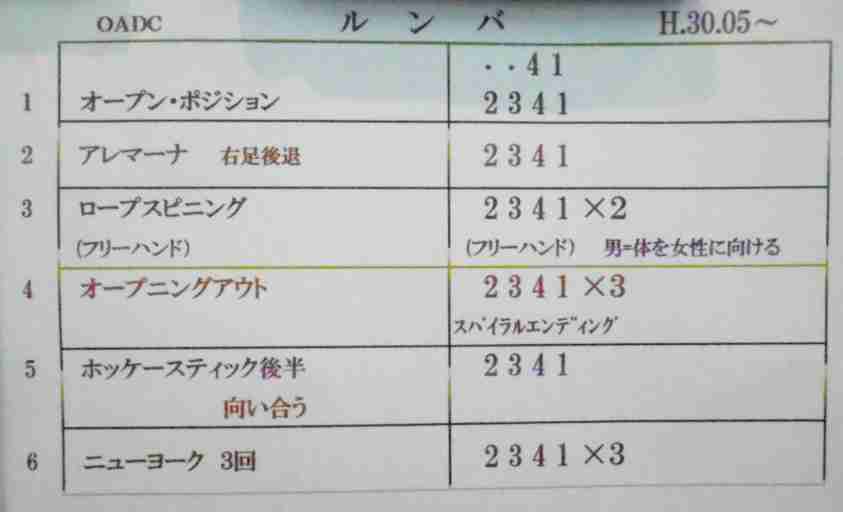 OADC ルンバ H.30.05～
・・41
1 オープン・ポジション 2341
2 アレマーナ 右足後退 2341
3 ロープスピニング 2341×2
(フリーハンド) (フリーハンド) 男=体を女性に向ける
4 オープニングアウト 2341×3
スパイラルエンディング
5 ホッケースティック後半 2341
向い合う
6 ニューヨーク 3回 2341×3